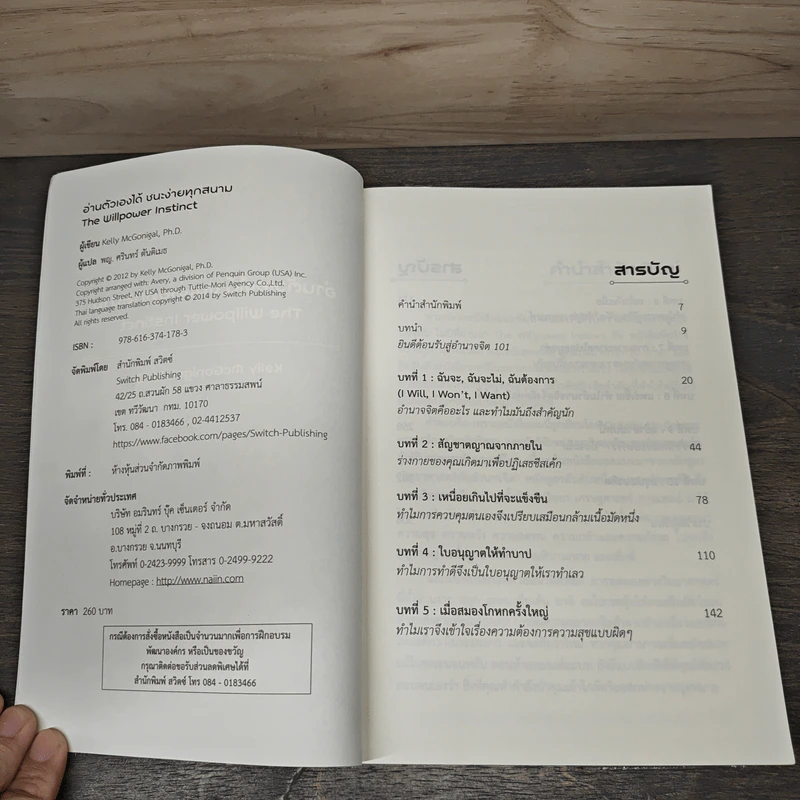 อ่านตัวเองได้ ชนะง่ายทุกสนาม
The Willpower Instinct
ผู้เขียน Kelly McGonigal, Ph.D.
ผู้แปล พญ. ศรินทร์ ตันติเมธ
Copyright © 2012 by Kelly McGonigal, Ph.D.
Copyright arranged with: Avery, a division of Penguin Group (USA) Inc.
375 Hudson Street, NY USA through Tuttle-Mori Agency Co.,Ltd.
Thai language translation copyright © 2014 by Switch Publishing
All rights reserved.
ISBN : 978-616-374-178-3
จัดพิมพ์โดย สำนักพิมพ์ สวิตซ์
Switch Publishing
42/25 ถ.สวนผัก 58 แขวง ศาลาธรรมสพน์
เขต ทวีวัฒนา กทม. 10170
โทร. 084 - 0183466 , 02-4412537
https://www.facebook.com/pages/Switch-Publishing
พิมพ์ที่ : ห้างหุ้นส่วนจำกัดภาพพิมพ์
จัดจำหน่ายทั่วประเทศ
บริษัท อมรินทร์ บุ๊ค เซ็นเตอร์ จำกัด
108 หมู่ที่ 2 ถ. บางกรวย - จงถนอม ต.มหาสวัสดิ์
อ.บางกรวย จ.นนทบุรี
โทรศัพท์ 0-2423-9999 โทรสาร 0-2499-9222
Homepage : http://www.naiin.com
ราคา 260 บาท
กรณีต้องการสั่งซื้อหนังสือเป็นจำนวนมากเพื่อการฝึกอบรม
พัฒนาองค์กร หรือเป็นของขวัญ
กรุณาติดต่อขอรับส่วนลดพิเศษได้ที่
สำนักพิมพ์ สวิตซ์ โทร 084 - 0183466
สารบัญ
คำนำสำนักพิมพ์ 7
บทนำ 9
ยินดีต้อนรับสู่อำนาจจิต 101
บทที่ 1 : ฉันจะ, ฉันจะไม่, ฉันต้องการ 20
(I Will, I Won't, I Want)
อำนาจจิตคืออะไร และทำไมมันถึงสำคัญนัก
บทที่ 2 : สัญชาตญาณจากภายใน 44
ร่างกายของคุณเกิดมาเพื่อปฏิเสธชีสเค้ก
บทที่ 3 : เหนื่อยเกินไปที่จะแข็งขืน 78
ทำไมการควบคุมตนเองจึงเปรียบเสมือนกล้ามเนื้อมัดหนึ่ง
บทที่ 4 : ใบอนุญาตให้ทำบาป 110
ทำไมการทำดีจึงเป็นใบอนุญาตให้เราทำเลว
บทที่ 5 : เมื่อสมองโกหกครั้งใหญ่ 142
ทำไมเราจึงเข้าใจเรื่องความต้องการความสุขแบบผิดๆ